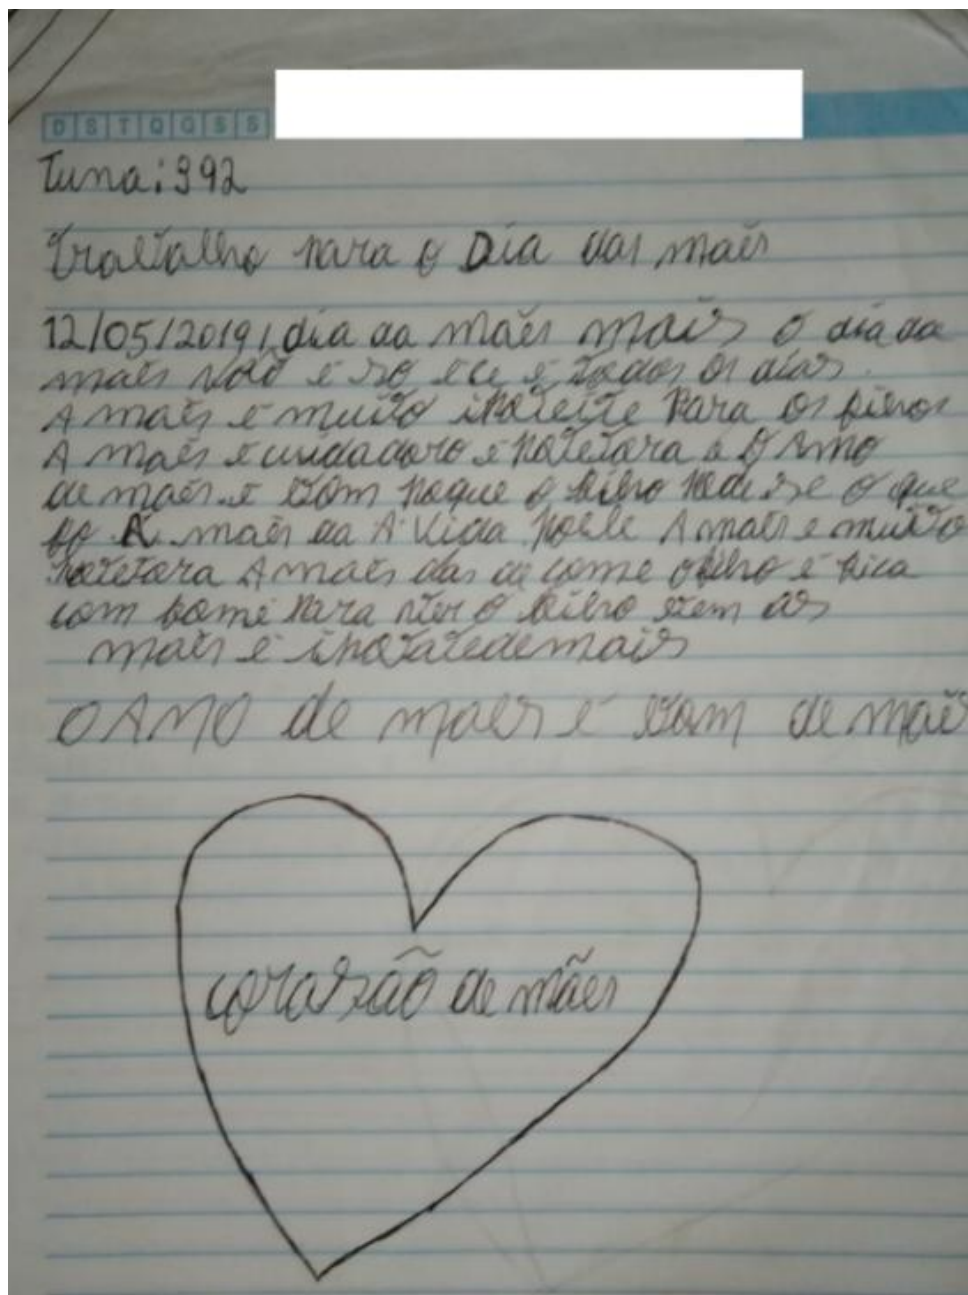 D S T Q Q S S
Tuna: 392
Trabalho para o Dia das mães
12/05/2019, dia da mães mais o dia da
mães não é so ece é todos os dias.
A mães é muito para os filhos
A mães é cuidadoro é potetora e O Amo
de mães é bom poque o filho pedi se o que
fo A mães da A vida poele A mães e muito
potetora A mães das de come o filho é fica
com fome para ver o filho bem as
mães é demais
O AMO de mães é bom de mais
corasão de mães